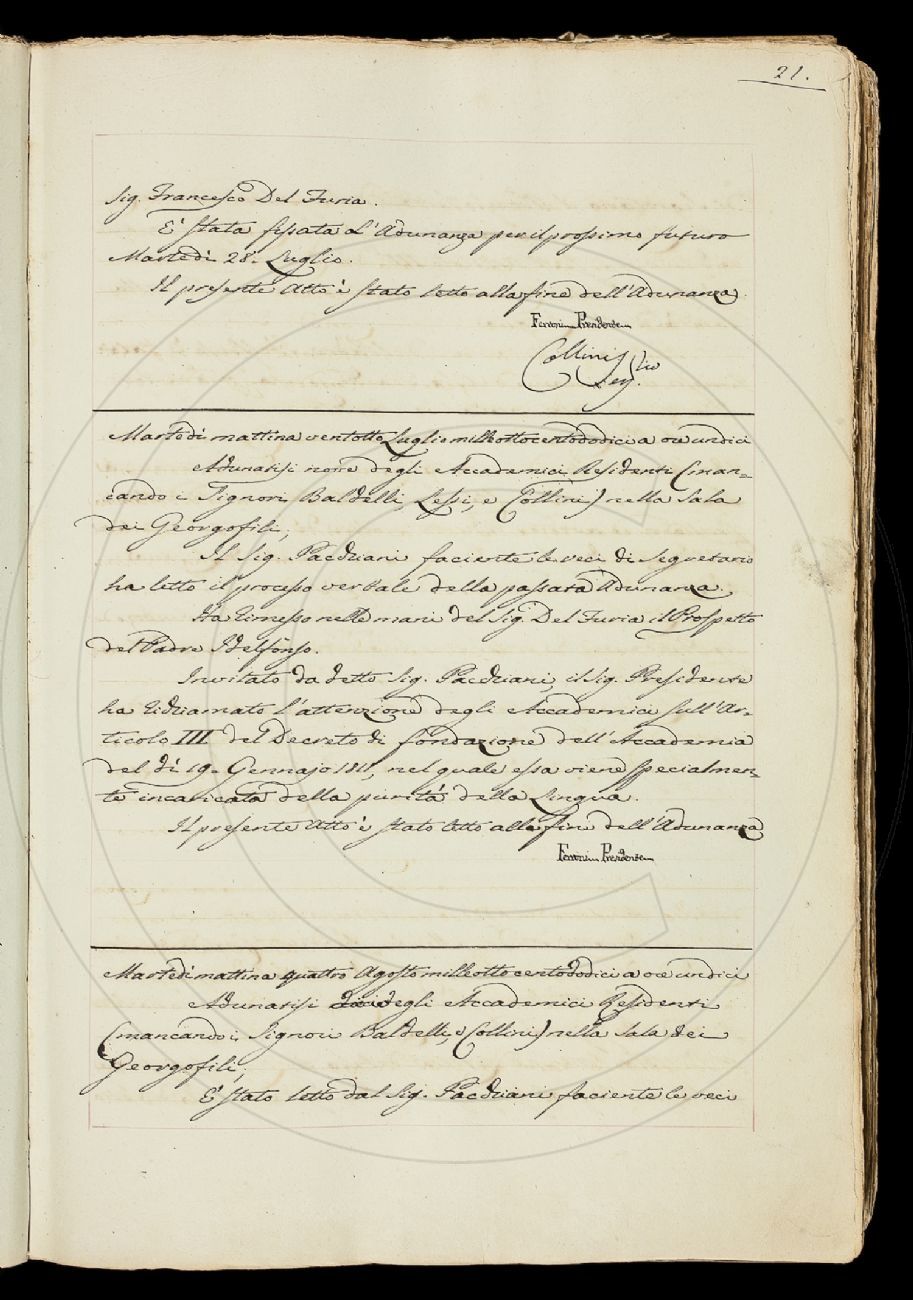 21.
Sig. Francesco Del Furia.
È stata fissata L'Adunanza per il prossimo futuro
Martedì 28. Luglio.
Il presente Atto è stato letto alla fine dell'Adunanza
Ferroni Presidente
Collini Seg.rio
Martedì mattina ventotto Luglio milleottocentododici a ore undici
Adunatisi nove degli Accademici Residenti (man-
cando i Signori Baldelli, Lessi, e Collini) nella Sala
dei Georgofili,
Il Sig. Pacchiani faciente le veci di Segretario
ha letto il processo verbale della passata Adunanza.
Ha rimesso nelle mani del Sig. Del Furia il Prospetto
del Padre Idelfonso.
Invitato da detto Sig. Pacchiani, il Sig. Presidente
ha richiamato l'attenzione degli Accademici sull'Ar-
ticolo III del Decreto di fondazione dell'Accademia
del dì 19. Gennajo 1811, nel quale essa viene specialmen-
te incaricata della purità della Lingua.
Il presente Atto è stato letto alla fine dell'Adunanza
Ferroni Presidente
Martedì mattina quattro Agosto milleottocentododici a ore undici
Adunatisi dieci degli Accademici Residenti
(mancando i Signori Baldelli, e Collini) nella Sala dei
Georgofili,
È stato letto dal Sig. Pacchiani faciente le veci